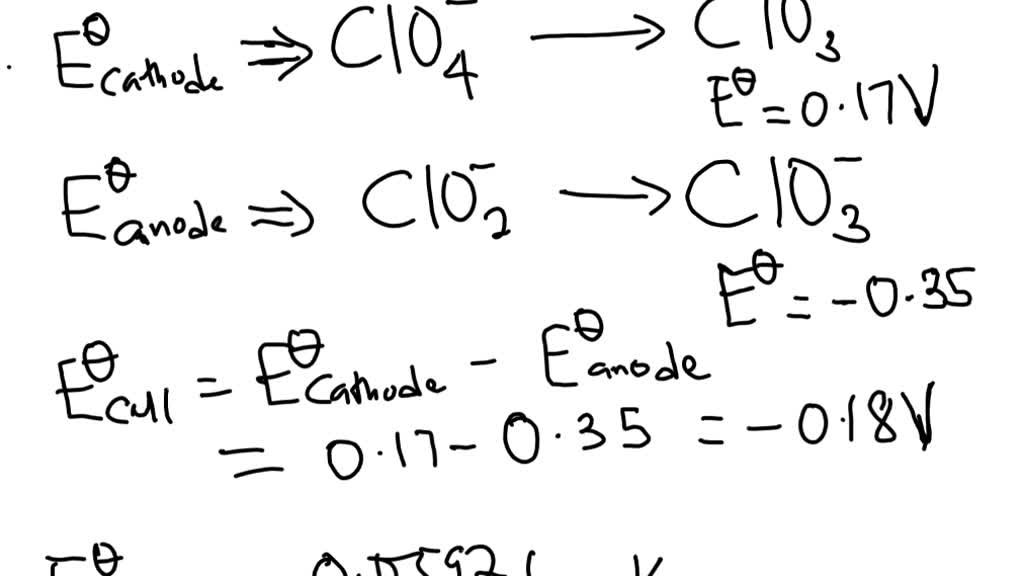 E^θ cathode ⇒ ClO4^- ⟶ ClO3
E^θ = 0.17V
E^θ anode ⇒ ClO2^- ⟶ ClO3^-
E^θ = -0.35
E^θ cell = E^θ cathode - E^θ anode
= 0.17 - 0.35 = -0.18V